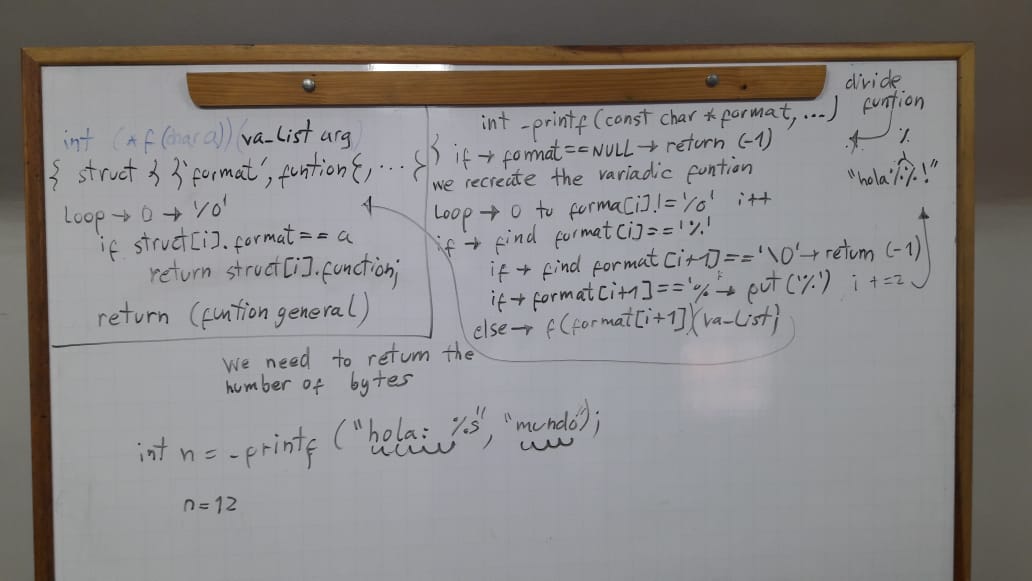 int (*f(char a))(va_list arg)
{ struct { {'format', funtion{, ... }
Loop → 0 → '/0'
if struct[i].format == a
return struct[i].function;
return (funtion general)
int _printf (const char *format, ...)
} if → format == NULL → return (-1)
we recreate the variadic funtion
Loop → 0 to forma[i] != '/0' i++
if → find format[i] == '%'
if → find format[i+1] == '\0' → return (-1)
if → format[i+1] == '% → put ('%') i +=2
else → f(format[i+1](va_list)
divide
funtion
%
"hola%%!"
We need to return the
number of bytes
int n = _printf ("hola: %s", "mundo");
n=12